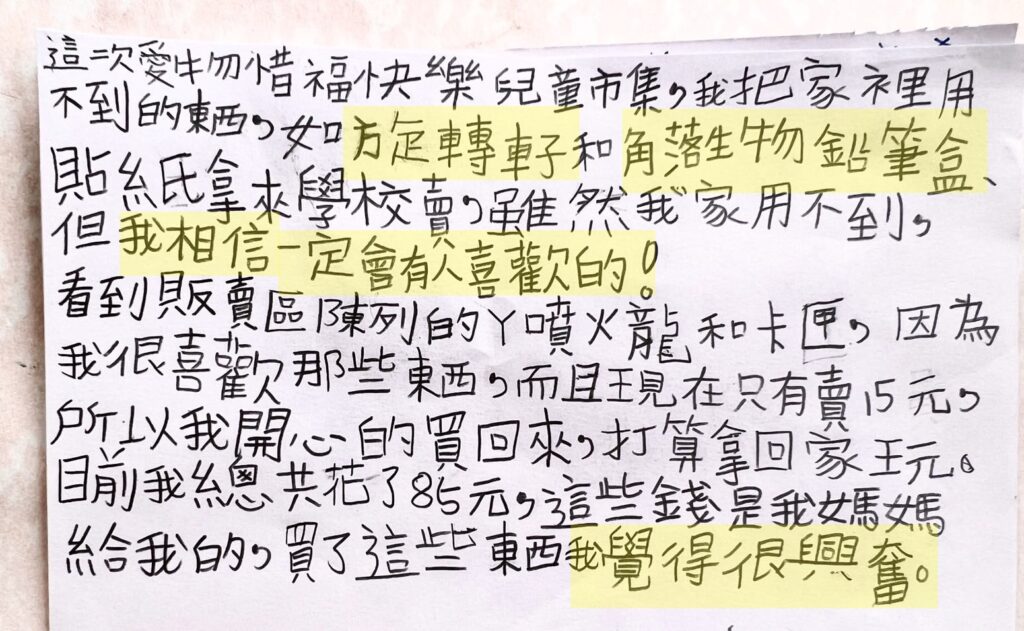 這次愛物惜福快樂兒童市集，我把家裡用
不到的東西，如方定轉轉子和角落生物鉛筆盒、
貼紙氏拿來學校賣，雖然我家用不到，
但我相信一定會有人喜歡的！
看到販賣區陳列的ㄚ噴火龍和卡匣，因為
我很喜歡那些東西，而且現在只有賣15元，
所以我開心的買回來，打算拿回家玩。
目前我總共花了85元，這些錢是我媽媽
給我的，買了這些東西我覺得很興奮。